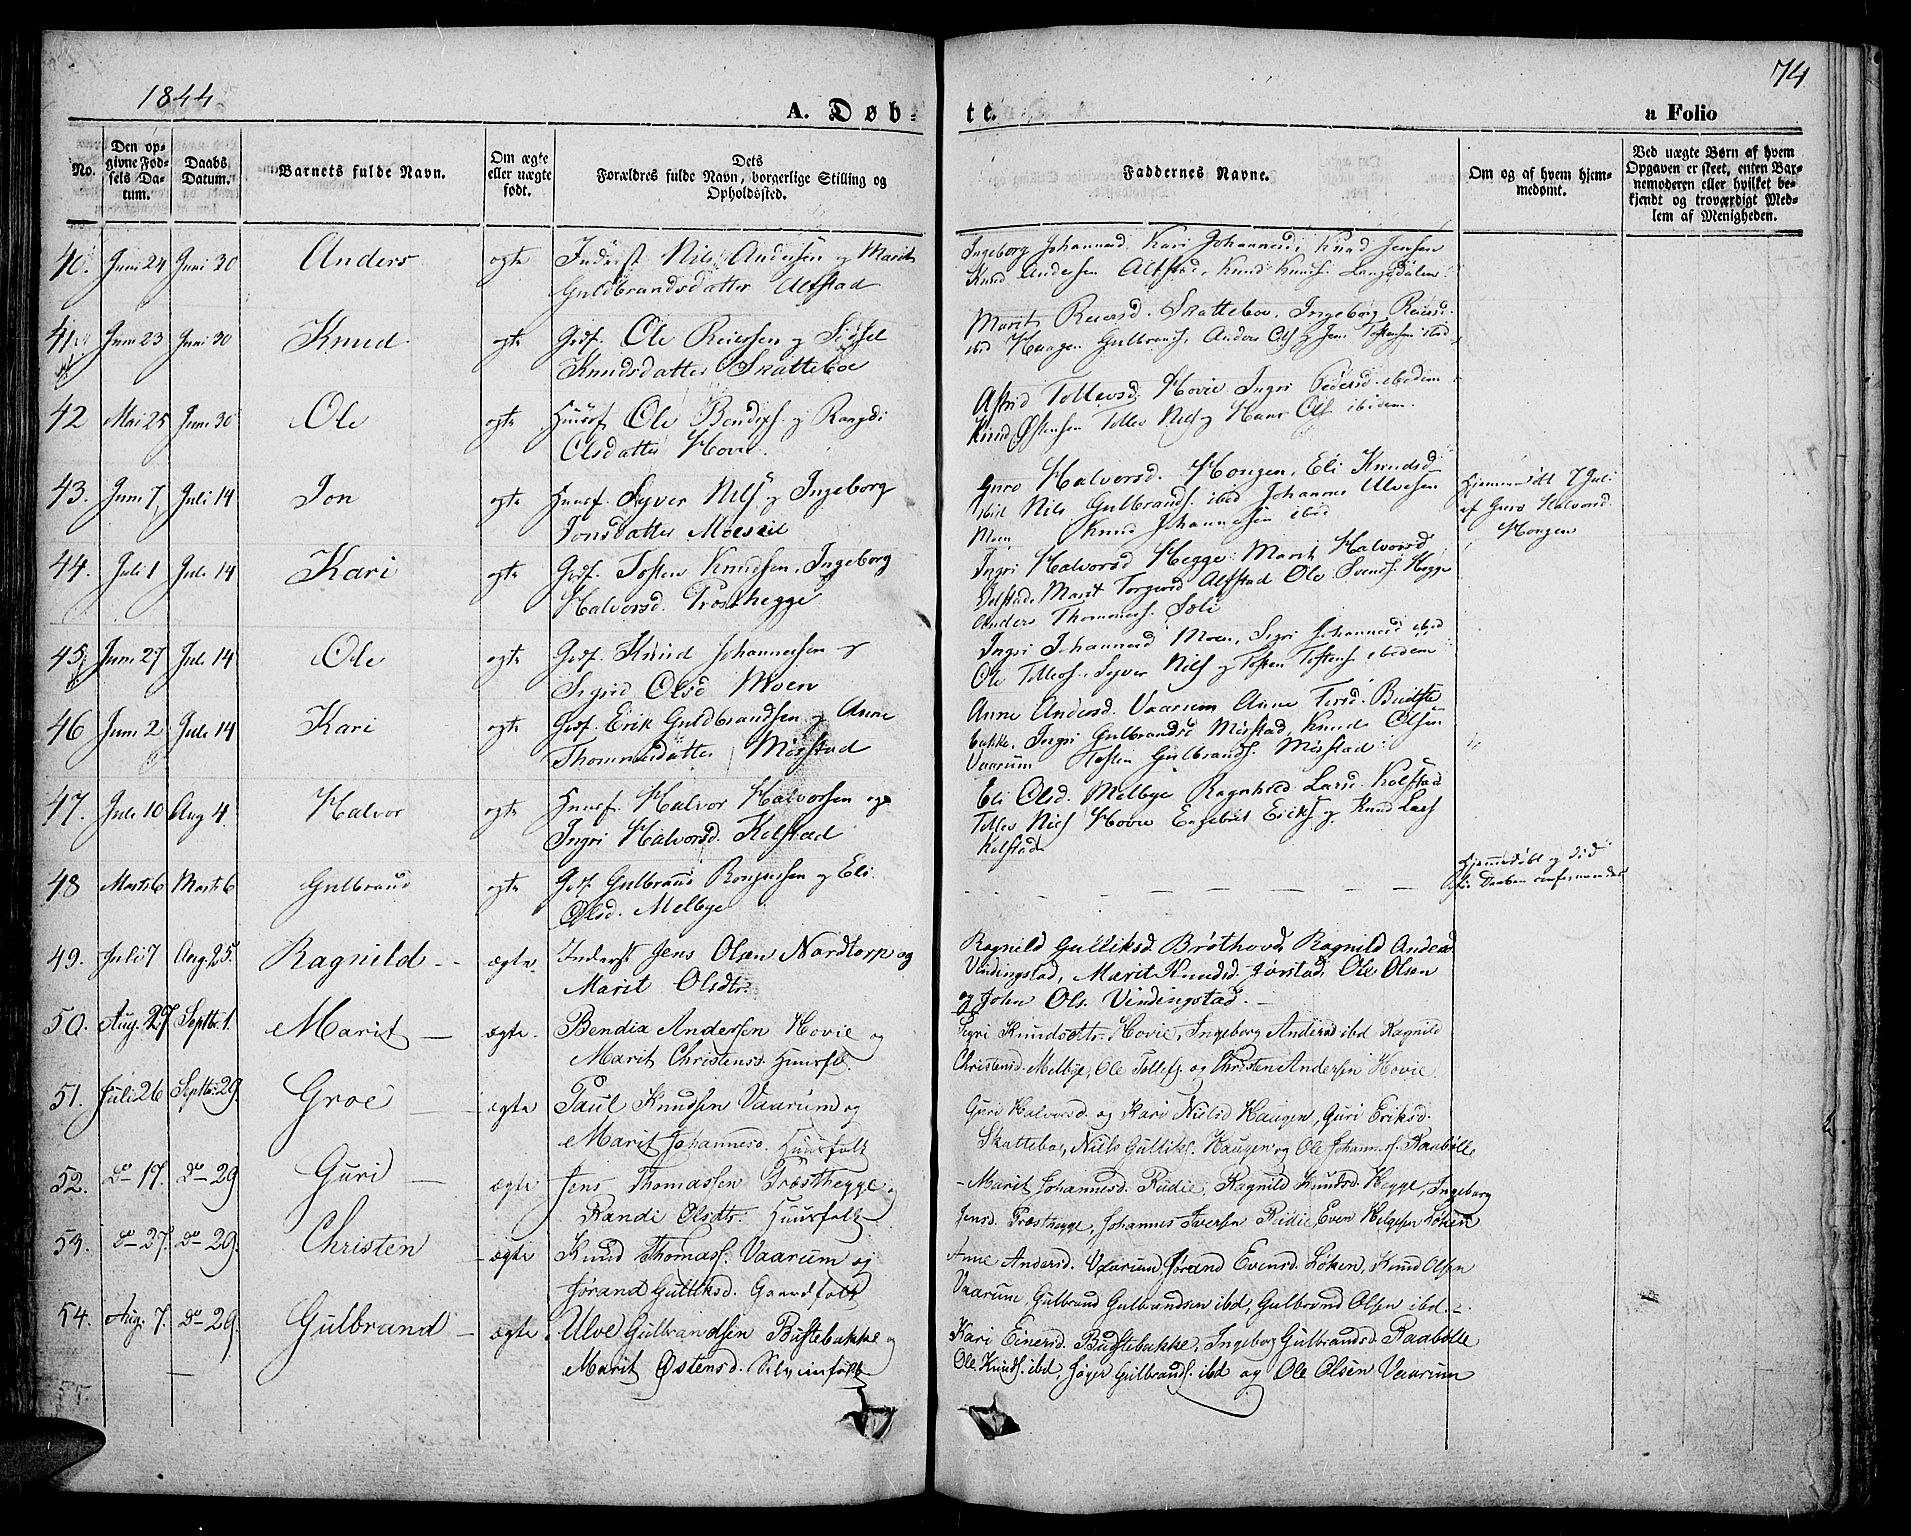 1844
74
A. Døb-
te.
a Folio
No.
Den op-
givne Fød-
sels Da-
tum.
Daabs
Datum.
Barnets fulde Navn.
Om ægte
eller uægte
født.
Dets
Forældres fulde Navn, borgerlige Stilling og
Opholdssted.
Faddernes Navne.
Om og af hvem hjem-
medømt.
Ved uægte Børn af hvem
Opgaven er skeet, enten Bar-
nemoderen eller hvilket be-
kjendt og troværdigt Med-
lem af Menigheden.
40. Juni 24 Juni 30 Anders ogte Inderst Nils Andersen og Marit
Guldbrandsdatter Alfstad
Ingeborg Johannesd. Kari Johannesd, Knud Jensen
Knud Andersen Alfstad, Knud Knuds Langedalen
41 Juni 23 Juni 30 Knud ogte Grdf. Ole Reiersen og Sidsel
Knudsdatter Skatteboe
Marit Reiersd. Skatteboe, Ingeborg Reiersd.
ibid Haagen Gulbrands, Anders Ols og Jens Tostensen ibid
42 Mai 25 Juni 30 Ole ogte Huusf. Ole Bendixs. og Rangdi
Olsdatter Hovie
Astrid Tollevsd. Hovie Ingri Pedersd. ibidem
Knud Østensen Tollev Nils og Hans Ols ibidem.
43. Juni 7 Juli 14 Jon ogte Huusf. Syver Nils og Ingeborg
Jonsdatter Moeseie
Guro Halvorsd. Hougen, Eli Knudsd
ibid Nils Gulbrands. ibid Johannes Ulvesen
Moen Knud Johannesen ibid
Hjemmedøbt 7 Juli
af Guro Halvorsd.
Hougen
44. Juli 1 Juli 14 Kari ogte Grdf. Tosten Knudsen, Ingeborg
Halvorsd. Trosthegge
Ingri Halvorsd Hegge Marit Halvorsd
Marit Torgersd Alfstad Ole Svends. Hegge
Anders Thommes.
45 Juni 27 Juli 14 Ole ogte Grdf. Knud Johannesen og
Sigrid Olsd Moen
Ingri Johannesd Moen, Sigri Johannesd ibid
Ole Tollevs. Syver Nils og Tosten Tostens. ibidem
46 Juni 2 Juli 14 Kari ogte Grdf. Erik Guldbrandsen og Anne
Thommesdatter Misstad
Anne Andersd. Vaarum Anne Iversd. Budste
bakke, Ingri Gulbrandsd Misstad, Knud Olsen
Vaarum Tosten Gulbrands. Misstad
47. Juli 10 Aug 4. Halvor ogte Huusf. Halvor Halvorsen og
Ingri Halvorsd. Kolstad
Eli Olsd. Melbye Ragnhild Larsd. Kolstad
Tollev Nils Hovie Engebret Eriks. og Knud Lars
Kolstad
48 Marts 6 Marts 6 Gulbrand ogte Grdf. Gulbrand og Eli
Olsd. Melbye
— — — — — —
Hjemmedøbt og død
49. Juli 7 Aug. 25. Ragnild — ægte. Inderst Jens Olsen Nordtorp og
Marit Olsdtr.
Ragnild Gulliksd. Brøthovd, Ragnild Andersd
Vindingstad, Marit Knudsd. Jørstad, Ole Olsen
og John Ols. Vindingstad. —
50. Aug. 27 Septbr. 1. Marit — ægte. Bendix Andersen Hovie og
Marit Christensd. Huusflk.
Sigri Knudsdtr. Hovie, Ingeborg Andersd ibd Ragnild
Christensd. Melbye, Ole Tollefs. og Christen Andersen Hovie
51. Juli 26 Septbr. 29. Groe — ægte Paul Knudsen Vaarum og
Marit Johannesd. Huusfolk
Guri Halvorsd. og Kari Nielsd Haugen, Guri Eriksd.
Skatteboe, Niels Gulliks. Haugen og Ole Johanness. Raabølle
52. Do 17. Do 29 Guri — ægte Jens Thomassen Trosthegge og
Randi Olsdtr. Huusfolk
Marit Johannesd. Rudie, Ragnild Knudsd. Hegge, Ingeborg
Jensd. Trosthegge, Johannes Iversen Rudie Even Helgesen Løken
53. Do 27. Do 29. Christen — ægte Knud Thomass. Vaarum og
Jørand Gulliksd. Gaardfolk
Anne Andersd. Vaarum Jørand Evensd. Løken, Knud Olsen
Vaarum Gulbrand Gulbrandsen ibd, Gulbrand Olsen ibd.
54. Aug. 7. Do 29. Gulbrand — ægte. Ulve Gulbrandsen Bustebakke og
Marit Østensd. Selveierfolk
Kari Einersd. Budstebakke, Ingeborg Gulbrandsd. Raabølle
Ole Knuds. ibd, Gulbrands. ibd og Ole Olsen Vaarum
55.